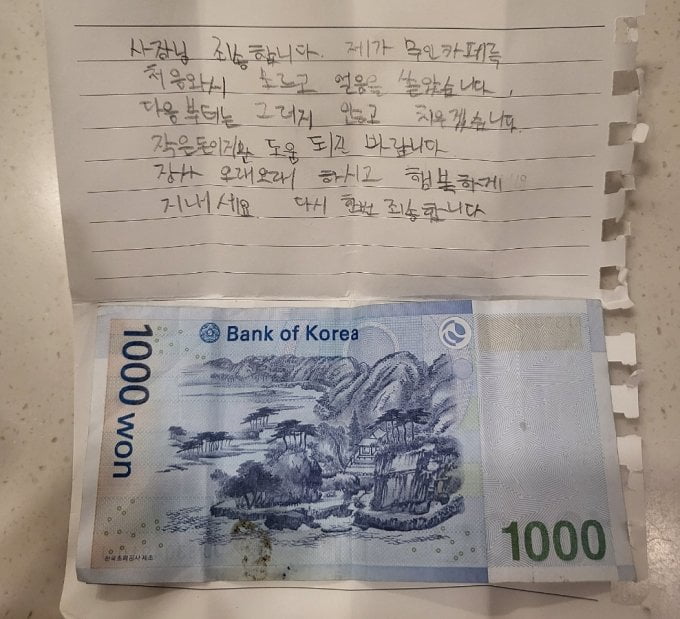 사장님 죄송합니다. 제가 무인카페를
처음와서 모르고 얼음을 쏟았습니다.
다음부터는 그러지 않고 치우겠습니다.
작은돈이지만 도움 되길 바랍니다
장사 오래오래 하시고 행복하게
지내세요 다시 한번 죄송합니다
Bank of Korea
1000 won
한국조폐공사 제조
1000